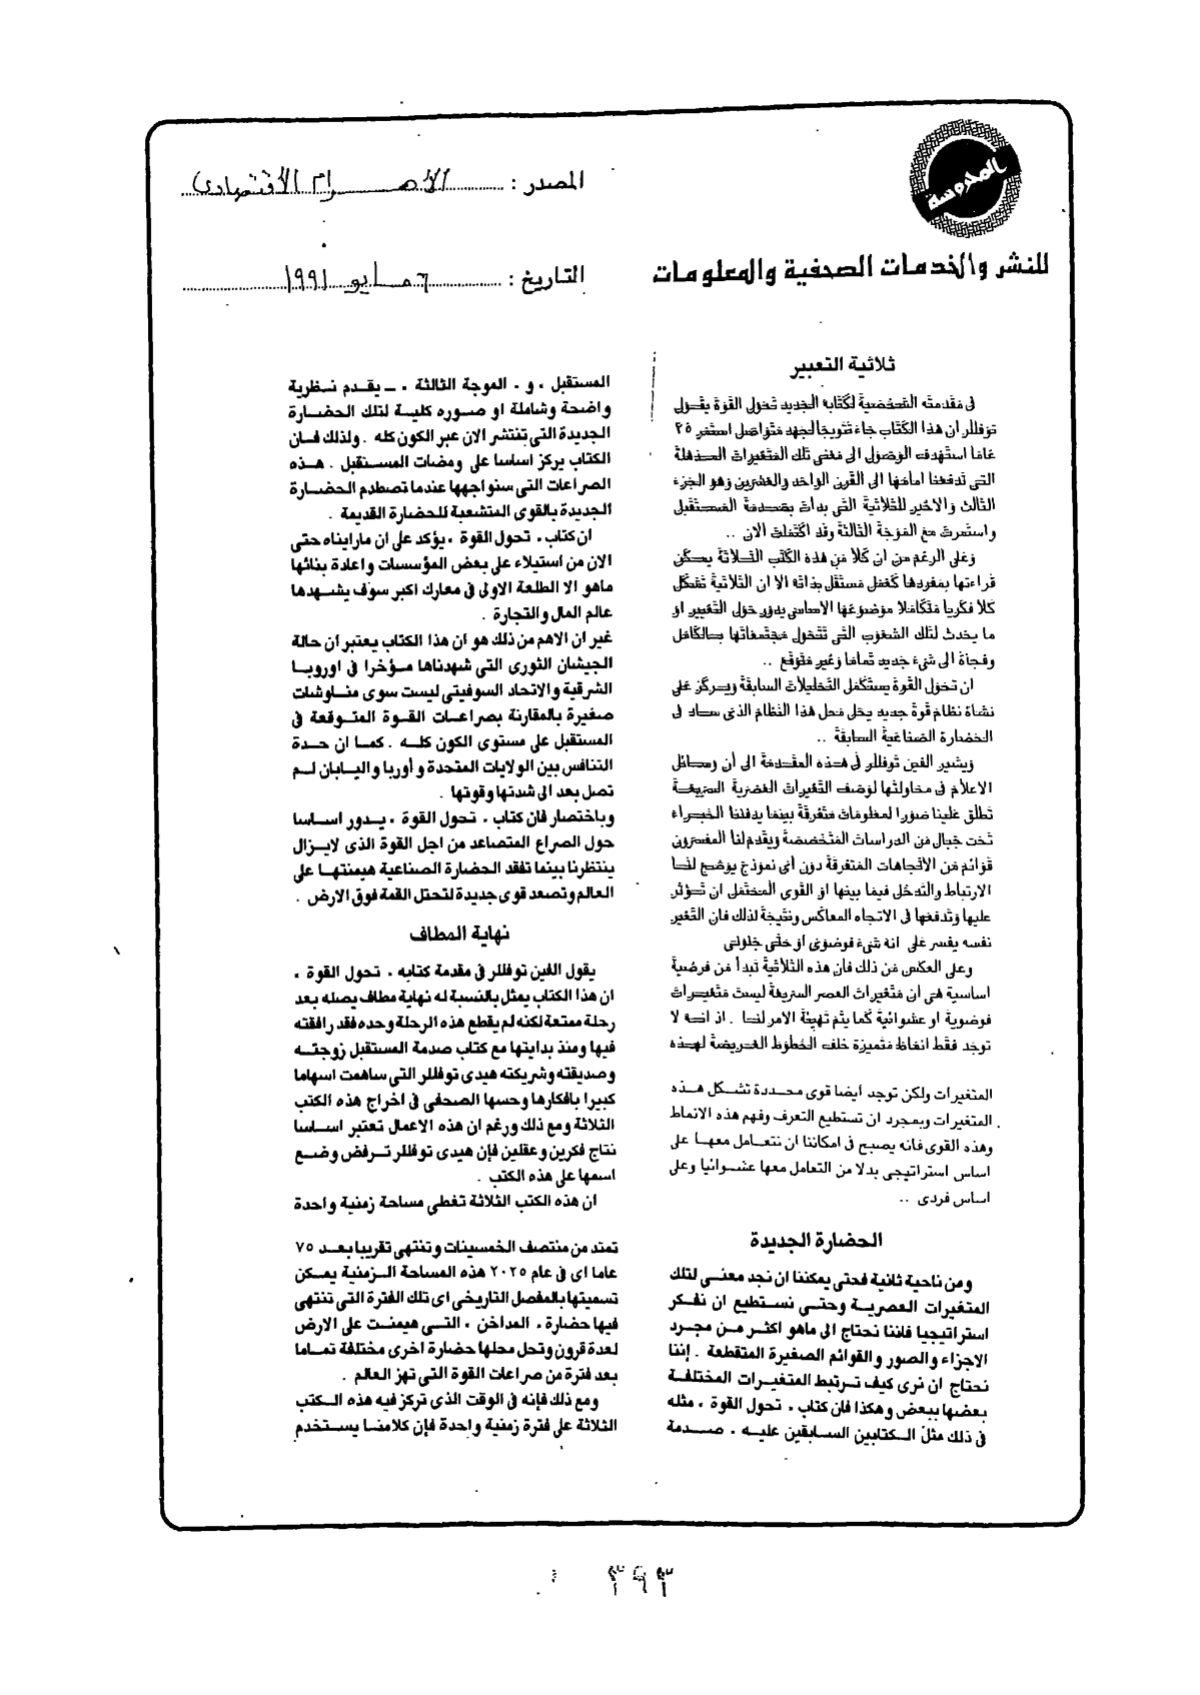 المحروسة
للنشر والخدمات الصحفية والمعلومات
المصدر : الأهرام الاقتصادى
التاريخ : ٦ مايو ١٩٩١
ثلاثية التعبير
فى مقدمته الشخصية لكتابه الجديد تحول القوة يقول
توفللر ان هذا الكتاب جاء تتويجا لجهد متواصل استمر ٢٥
عاما استهدف الوصول الى مغنى تلك المتغيرات المذهلة
التى تدفعنا امامها الى القرن الواحد والعشرين وهو الجزء
الثالث والاخير للثلاثية التى بدات بصدمة المستقبل
واستمرت مع الموجة الثالثة وقد اكتملت الان ..
وعلى الرغم من ان كلا من هذه الكتب الثلاثة يمكن
قراءتها بمفردها كعمل مستقل بذاته الا ان الثلاثية تشكل
كلا فكريا متكاملا موضوعها الاساسى يدور حول التغيير او
ما يحدث لتلك الشعوب التى تتحول مجتمعاتها بالكامل
وفجأة الى شىء جديد تماما وغير متوقع ..
ان تحول القوة يستكمل التحليلات السابقة ويركز على
نشاة نظام قوة جديد يحل محل هذا النظام الذى ساد فى
الحضارة الصناعية السابقة ..
ويشير الفين توفللر فى هذه المقدمة الى أن وسائل
الاعلام فى محاولتها لوصف التغيرات العصرية السريعة
تطلق علينا صورا لمعلومات متفرقة بينما يدفننا الخبراء
تحت جبال من الدراسات المتخصصة ويقدم لنا المفسرون
قوائم من الاتجاهات المتفرقة دون أى نموذج يوضح لنا
الارتباط والتدخل فيما بينها او القوى المحتمل ان تؤثر
عليها وتدفعها فى الاتجاه المعاكس ونتيجة لذلك فان التغير
نفسه يفسر على انه شىء فوضوى او حتى جنونى
وعلى العكس من ذلك فان هذه الثلاثية تبدأ من فرضية
اساسية هى أن متغيرات العصر السريعة ليست متغيرات
فوضوية او عشوائية كما يتم تهيئة الامر لنا . اذ انه لا
توجد فقط انماط متميزة خلف الخطوط العريضة لهذه
المتغيرات ولكن توجد أيضا قوى محددة تشكل هذه
المتغيرات وبمجرد ان تستطيع التعرف وفهم هذه الانماط
وهذه القوى فانه يصبح فى امكاننا ان نتعامل معها على
اساس استراتيجى بدلا من التعامل معها عشوائيا وعلى
اساس فردى ..
الحضارة الجديدة
ومن ناحية ثانية فحتى يمكننا ان نجد معنى لتلك
المتغيرات العصرية وحتى نستطيع ان نفكر
استراتيجيا فاننا نحتاج الى ماهو اكثر من مجرد
الاجزاء والصور والقوائم الصغيرة المتقطعة . إننا
نحتاج ان نرى كيف ترتبط المتغيرات المختلفة
بعضها ببعض وهكذا فان كتاب . تحول القوة ، مثله
فى ذلك مثل الكتابين السابقين عليه . صدمة
المستقبل ، و . الموجة الثالثة ، ـ يقدم نظرية
واضحة وشاملة او صوره كلية لتلك الحضارة
الجديدة التى تنتشر الان عبر الكون كله . ولذلك فان
الكتاب يركز اساسا على ومضات المستقبل . هذه
الصراعات التى سنواجهها عندما تصطدم الحضارة
الجديدة بالقوى المتشعبة للحضارة القديمة .
ان كتاب . تحول القوة ، يؤكد على ان مارايناه حتى
الان من استيلاء على بعض المؤسسات واعادة بنائها
ماهو الا الطلعة الاولى فى معارك اكبر سوف يشهدها
عالم المال والتجارة .
غير ان الاهم من ذلك هو ان هذا الكتاب يعتبر ان حالة
الجيشان الثورى التى شهدناها مؤخرا فى اوروبا
الشرقية والاتحاد السوفيتى ليست سوى مناوشات
صغيرة بالمقارنة بصراعات القوة المتوقعة فى
المستقبل على مستوى الكون كله . كما ان حدة
التنافس بين الولايات المتحدة وأوربا واليابان لم
تصل بعد الى شدتها وقوتها .
وباختصار فان كتاب . تحول القوة ، يدور اساسا
حول الصراع المتصاعد من اجل القوة الذى لايزال
ينتظرنا بينما تفقد الحضارة الصناعية هيمنتها على
العالم وتصعد قوى جديدة لتحتل القمة فوق الارض .
نهاية المطاف
يقول الفين توفللر فى مقدمة كتابه . تحول القوة ،
ان هذا الكتاب يمثل بالنسبة له نهاية مطاف يصله بعد
رحلة ممتعة لكنه لم يقطع هذه الرحلة وحده فقد رافقته
فيها ومنذ بدايتها مع كتاب صدمة المستقبل زوجته
وصديقته وشريكته هيدى توفللر التى ساهمت اسهاما
كبيرا بافكارها وحسها الصحفى فى اخراج هذه الكتب
الثلاثة ومع ذلك ورغم ان هذه الاعمال تعتبر اساسا
نتاج فكرين وعقلين فإن هيدى توفللر ترفض وضع
اسمها على هذه الكتب .
ان هذه الكتب الثلاثة تغطى مساحة زمنية واحدة
تمتد من منتصف الخمسينات وتنتهى تقريبا بعد ٧٥
عاما اى فى عام ٢٠٢٥ هذه المساحة الزمنية يمكن
تسميتها بالمفصل التاريخى اى تلك الفترة التى تنتهى
فيها حضارة . المداخن ، التى هيمنت على الارض
لعدة قرون وتحل محلها حضارة اخرى مختلفة تماما
بعد فترة من صراعات القوة التى تهز العالم .
ومع ذلك فإنه فى الوقت الذى تركز فيه هذه الكتب
الثلاثة على فترة زمنية واحدة فإن كلامنها يستخدم
٣٩٣